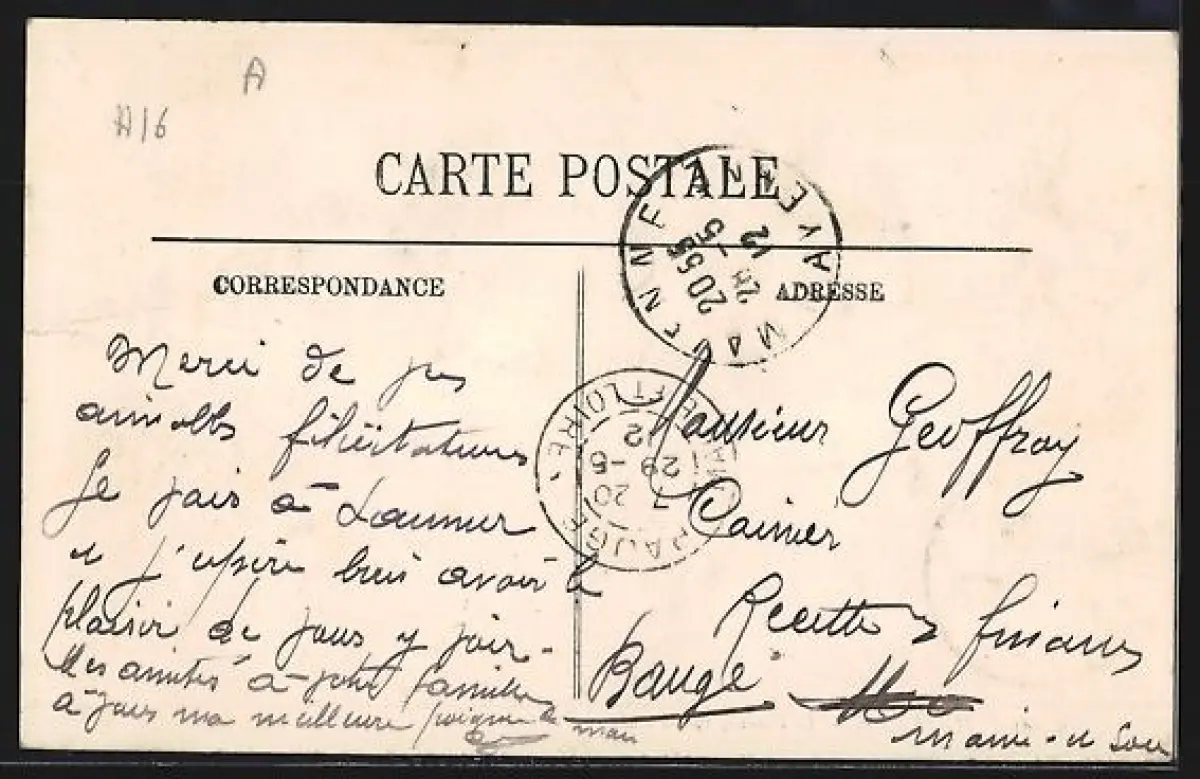 A
A16
CARTE POSTALE
MAYENNE MAYENNE
20 55
28 - 5
12
CORRESPONDANCE
ADRESSE
Merci de vos
aimables félicitations
Je vais à Saumur
et j'espère bien avoir le
plaisir de vous y voir -
Mes amitiés à votre famille
à vous ma meilleure poignée de main
BAUGÉ MAINE-ET-LOIRE
7 20
29 - 5
12
Monsieur Geoffray
Caissier
Recette des finances
Baugé
Maine-et-Loire